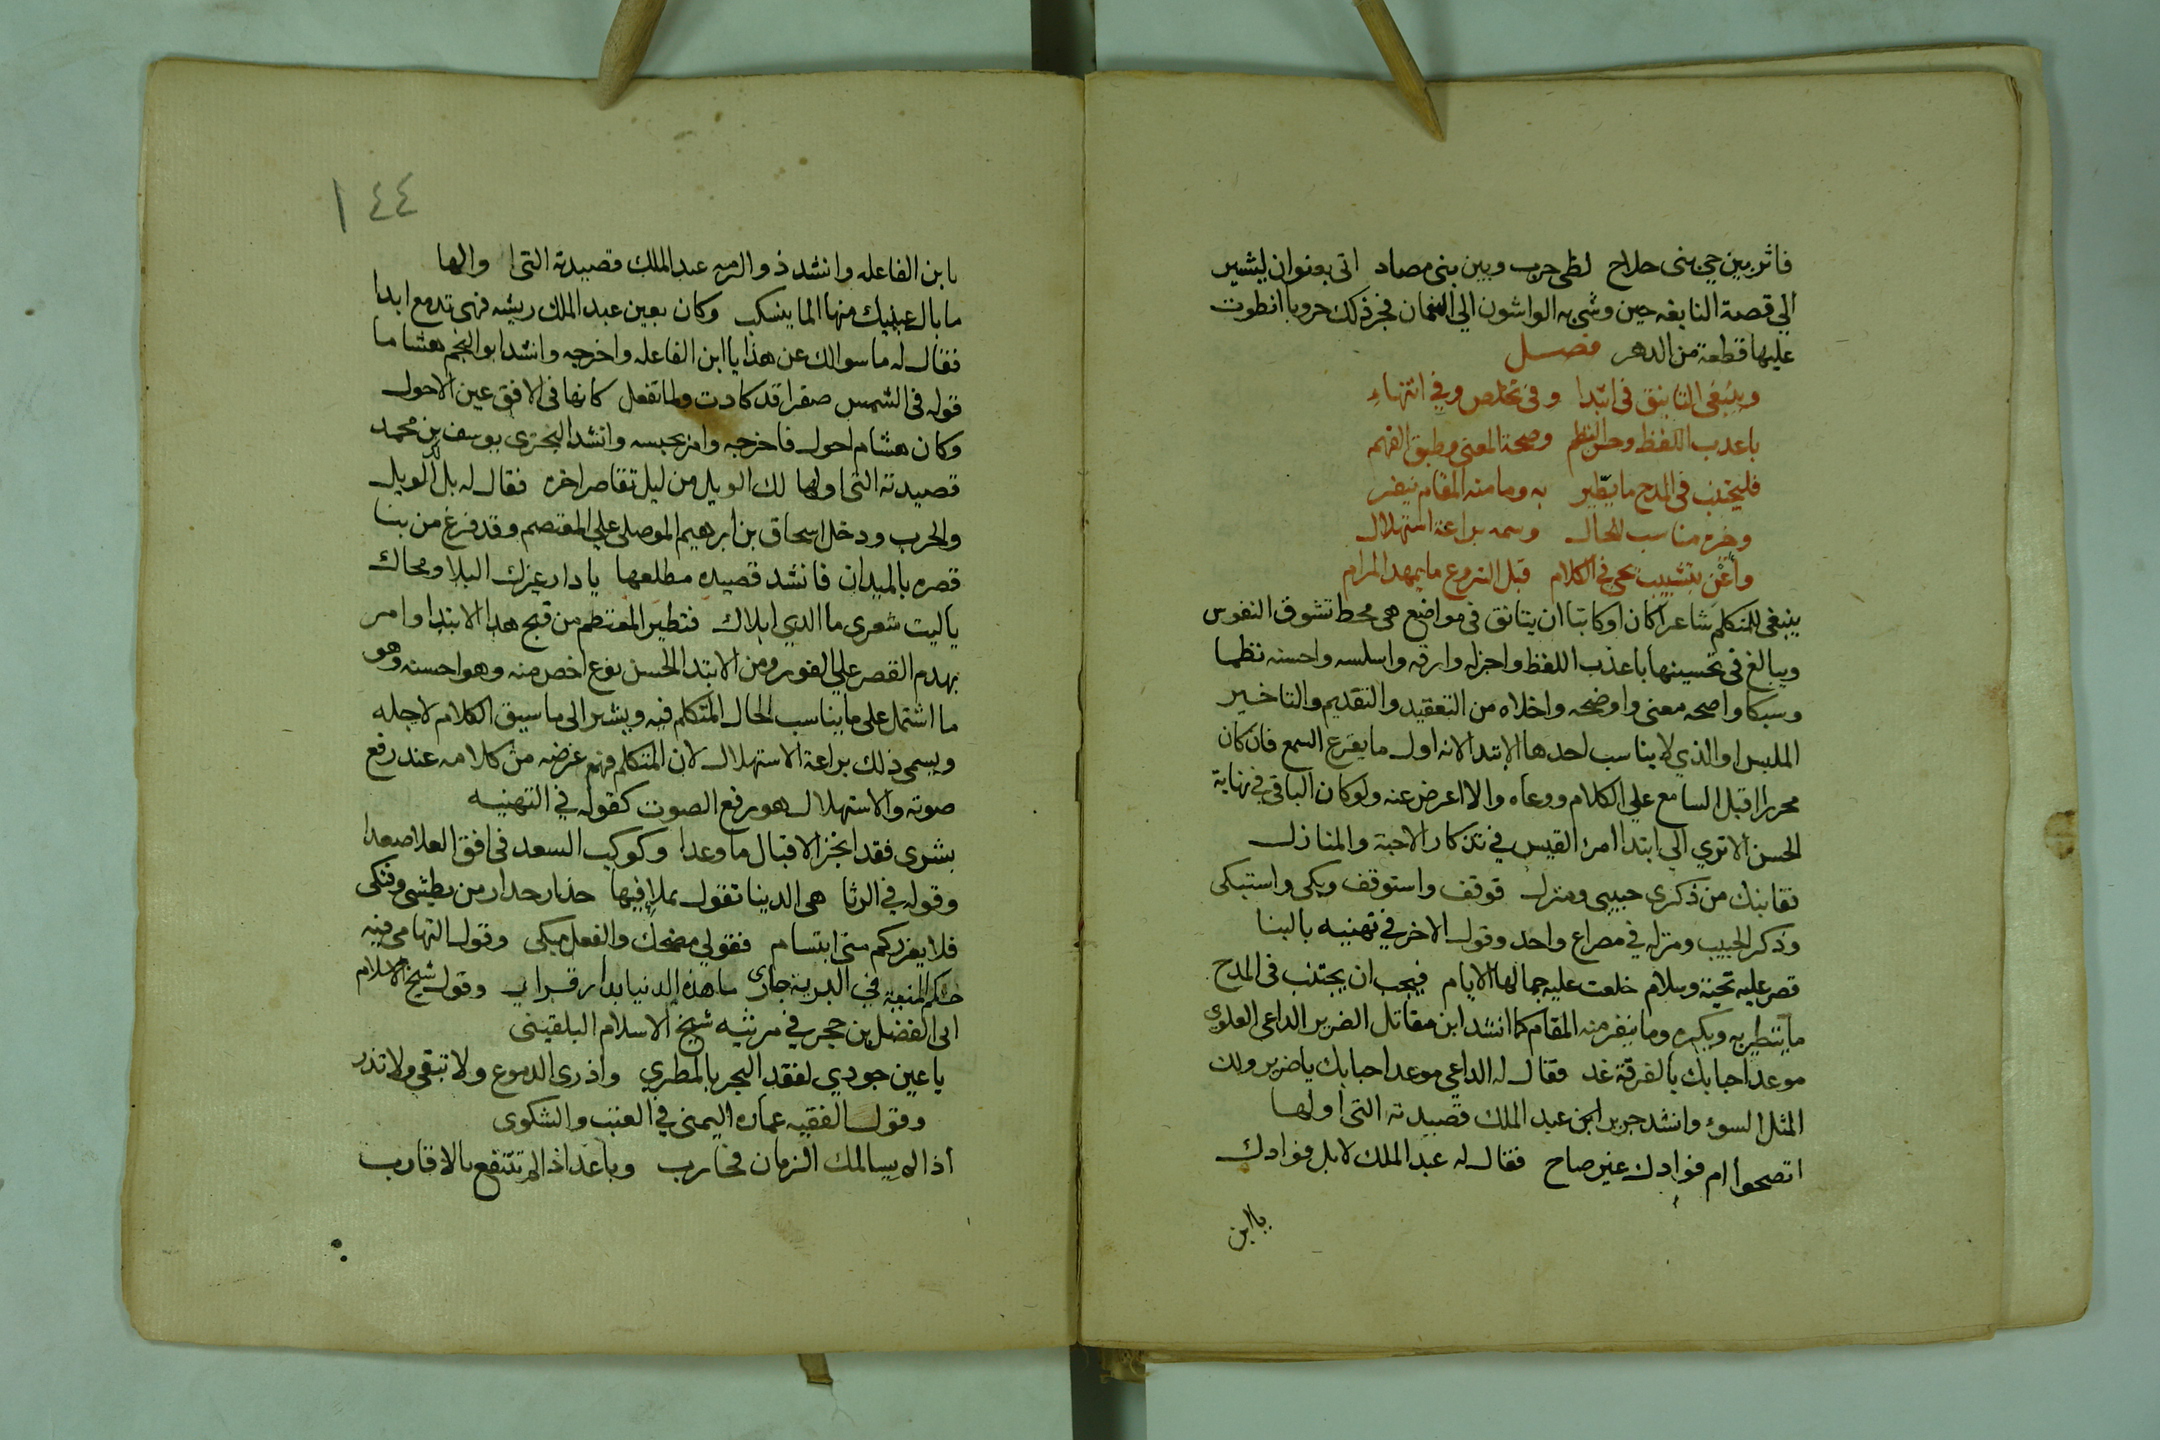 فاثر بين حي بني حلاح لظى حرب وبين بني مصاد اتى بعنوان ليشير
الى قصة النابغه حين وشى به الواشون الى النعمان فجر ذلك حروبا انطوت
عليها قطعة من الدهر فصل
وينبغي التانيق في ابتدا وفي تخلص وفي انتهاء
باعذب اللفظ وحسن النظم وصحة المعنى وطبق الفهم
فليجتنب في المدح ما يطير به وما منه المقام ينفر
وخيره مناسب للحال وسمه براعة استهلال
وأعن بتشبيب يجي في الكلام قبل الشروع ما يمهد المرام
ينبغي للمتكلم شاعرا كان او كاتبا ان يتانق في مواضع هي محط تشوف النفوس
ويبالغ في تحسينها باعذب اللفظ واجزله وارقه واسلسه واحسنه نظما
وسبكا واصحه معنى واوضحه واخلاه من التعقيد والتقديم والتاخير
الملبس او الذي لا يناسب احدها الابتدا لانه اول ما يقرع السمع فان كان
محررا اقبل السامع على الكلام ووعاه والا اعرض عنه ولو كان الباقي في نهاية
الحسن الا ترى الى ابتدا امرء القيس في تذكار الاحبة والمنازل
قفا نبك من ذكرى حبيب ومنزل فوقف واستوقف وبكى واستبكى
وذكر الحبيب ومنزله في مصراع واحد وقول الاخر في تهنيه بالبنا
قصر عليه تحية وسلام خلعت عليه جمالها الايام فيجب ان يجتنب في المدح
ما يتطير به ويكره وما ينفر منه المقام كما انشد ابن مقاتل الضرير الداعي العلوي
موعد احبابك بالفرقة غد فقال له الداعي موعد احبابك يا ضرير ولك
المثل السوء وانشد جرير ابن عبد الملك قصيدته التي اولها
اتصحوا ام فوادك غير صاح فقال له عبد الملك لا بل فوادك
يا ابن
١٤٤
يا بن الفاعله وانشد ذو الرمه عبد الملك قصيدته التي اولها
ما بال عينيك منها الما ينسكب وكان بعين عبد الملك ريشه فهي تدمع ابدا
فقال له ما سوالك عن هذا يا ابن الفاعله واخرجه وانشد ابو النجم هشاما
قوله في الشمس صفرا قد كادت ولما تفعل كانها في الافق عين الاحول
وكان هشام احول فاخرجه وامر بحبسه وانشد البحتري يوسف بن محمد
قصيدته التي اولها لك الويل من ليل تقاصر اخره فقال له بل لك الويل
والحرب ودخل اسحاق بن ابرهيم الموصلي على المعتصم وقد فرغ من بنا
قصره بالميدان فانشد قصيده مطلعها يا دار غيرك البلا ومحاك
يا ليت شعري ما الذي ابلاك فتطير المعتصم من قبح هذا الابتدا وامر
بهدم القصر على الفور ومن الابتدا الحسن نوع اخص منه وهو احسنه وهو
ما اشتمل على ما يناسب الحال المتكلم فيه ويشير الى ما سيق الكلام لاجله
ويسمى ذلك براعة الاستهلال لان المتكلم فهم غرضه من كلامه عند رفع
صوته والاستهلال هو رفع الصوت كقوله في التهنيه
بشرى فقد انجز الاقبال ما وعدا وكوكب السعد في افق العلا صعدا
وقوله في الرثا هي الدينا تقول بملا فيها حذار حذار من بطشي وفتكي
فلا يغرركم مني ابتسام فقولي مضحك والفعل مبكي وقول التهامي فيه
حكم المنية في البرية جاري ما هذه الدنيا بدار قرار وقول شيخ الاسلام
ابي الفضل بن حجر في مرثيه شيخ الاسلام البلقيني
يا عين جودي لفقد البحر بالمطر واذري الدموع ولا تبقي ولا تذر
وقول الفقيه عماره اليمني في العتب والشكوى
اذا لم يسالمك الزمان فحارب وباعد اذا لم تنتفع بالاقارب